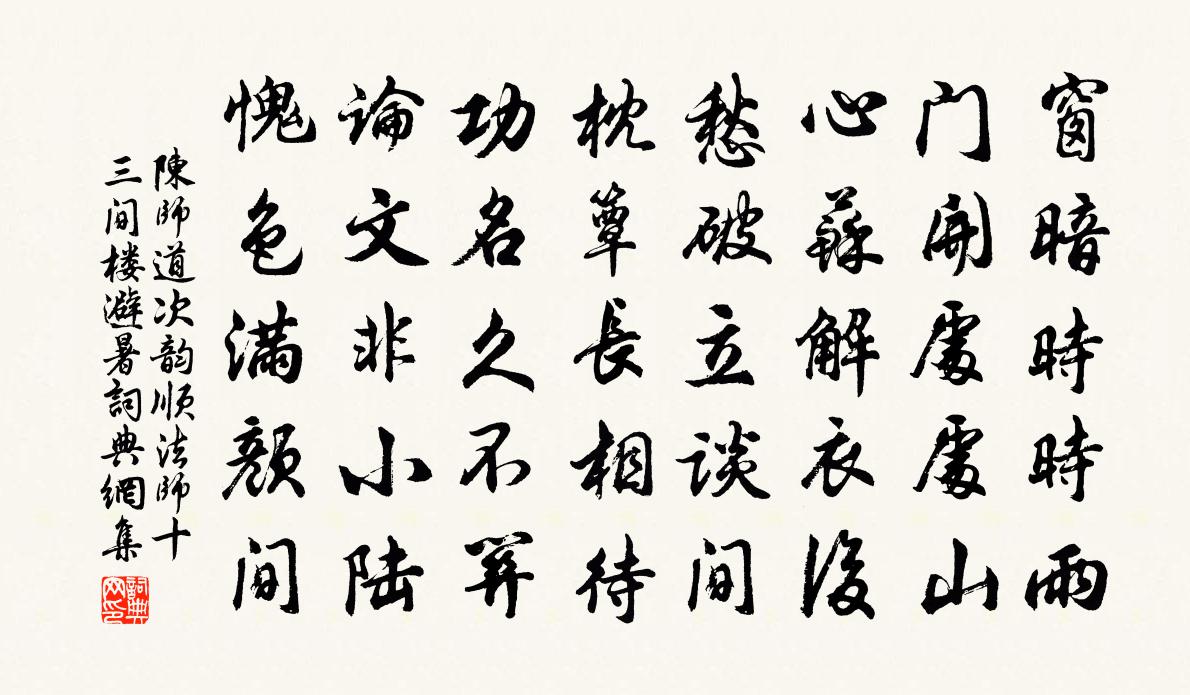 窗暗時時雨
门開處處山
心蘇解衣後
愁破立談间
枕簟長相待
功名久不關
論文非小陆
愧色满顔间
陳師道次韵順法師十
三间楼避暑詞典網集
詞典网印